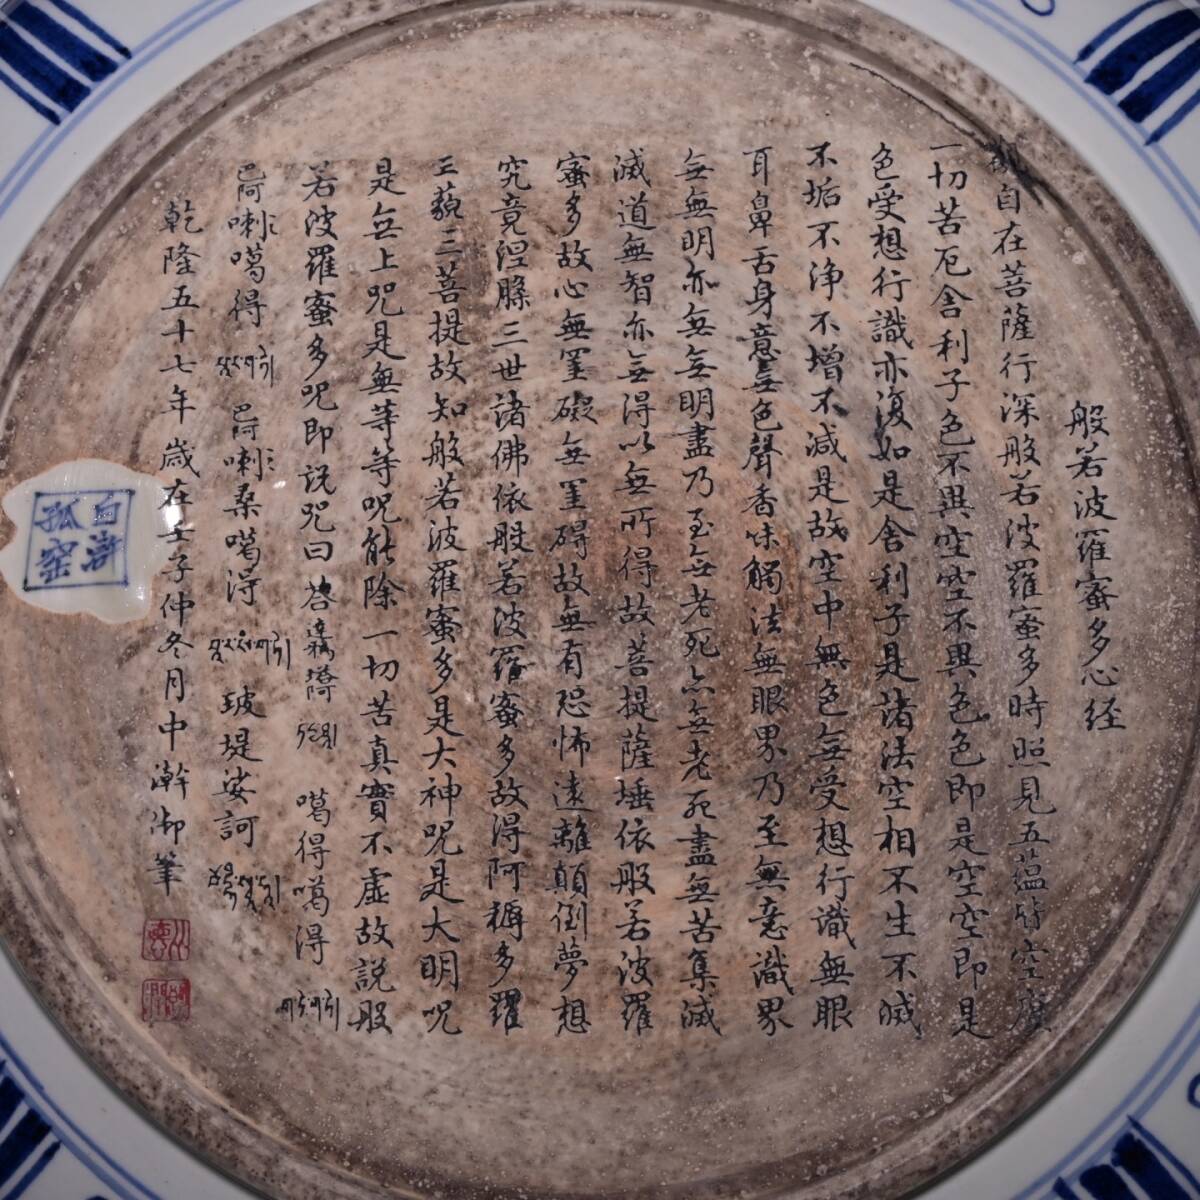 般若波羅蜜多心经
觀自在菩薩行深般若波羅蜜多時照見五蕴皆空度
一切苦厄舎利子色不異空空不異色色即是空空即是
色受想行識亦復如是舎利子是诸法空相不生不滅
不垢不浄不增不減是故空中無色無受想行識無眼
耳鼻舌身意無色聲香味觸法無眼界乃至無意識界
無無明亦無無明盡乃至無老死亦無老死盡無苦集滅
滅道無智亦無得以無所得故菩提薩埵依般若波羅
蜜多故心無罣礙無罣碍故無有恐怖遠離顛倒夢想
究竟涅槃三世諸佛依般若波羅蜜多故得阿耨多羅
三藐三菩提故知般若波羅蜜多是大神呪是大明呪
是無上呪是無等等呪能除一切苦真實不虚故説般
若波羅蜜多呪即説呪曰 噶得噶得
巴阿喇噶得 巴阿喇桑噶得 玻堤娑訶
乾隆五十七年歳在壬子仲冬月中澣御筆
白滸
孤窑